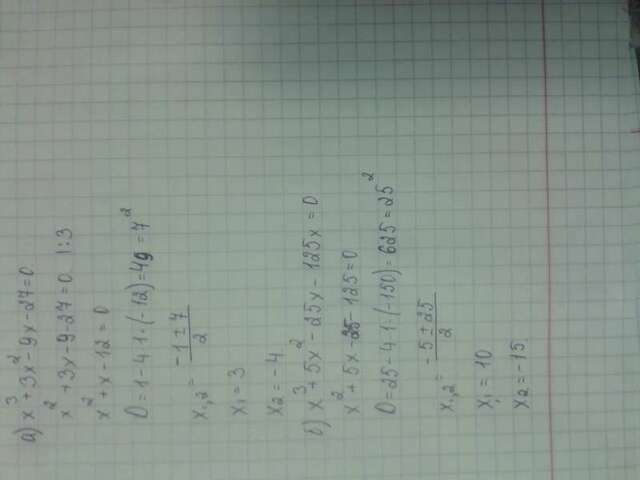 а) x³+3x²-9x-27=0
x²+3x-9-27=0 |:3
x²+x-12=0
D=1-4·1·(-12)=49=7²
x₁,₂=(-1±7)/2
x₁=3
x₂=-4
б) x³+5x²-25x-125x=0
x²+5x-25-125=0
D=25-4·1·(-150)=625=25²
x₁,₂=(-5±25)/2
x₁=10
x₂=-15